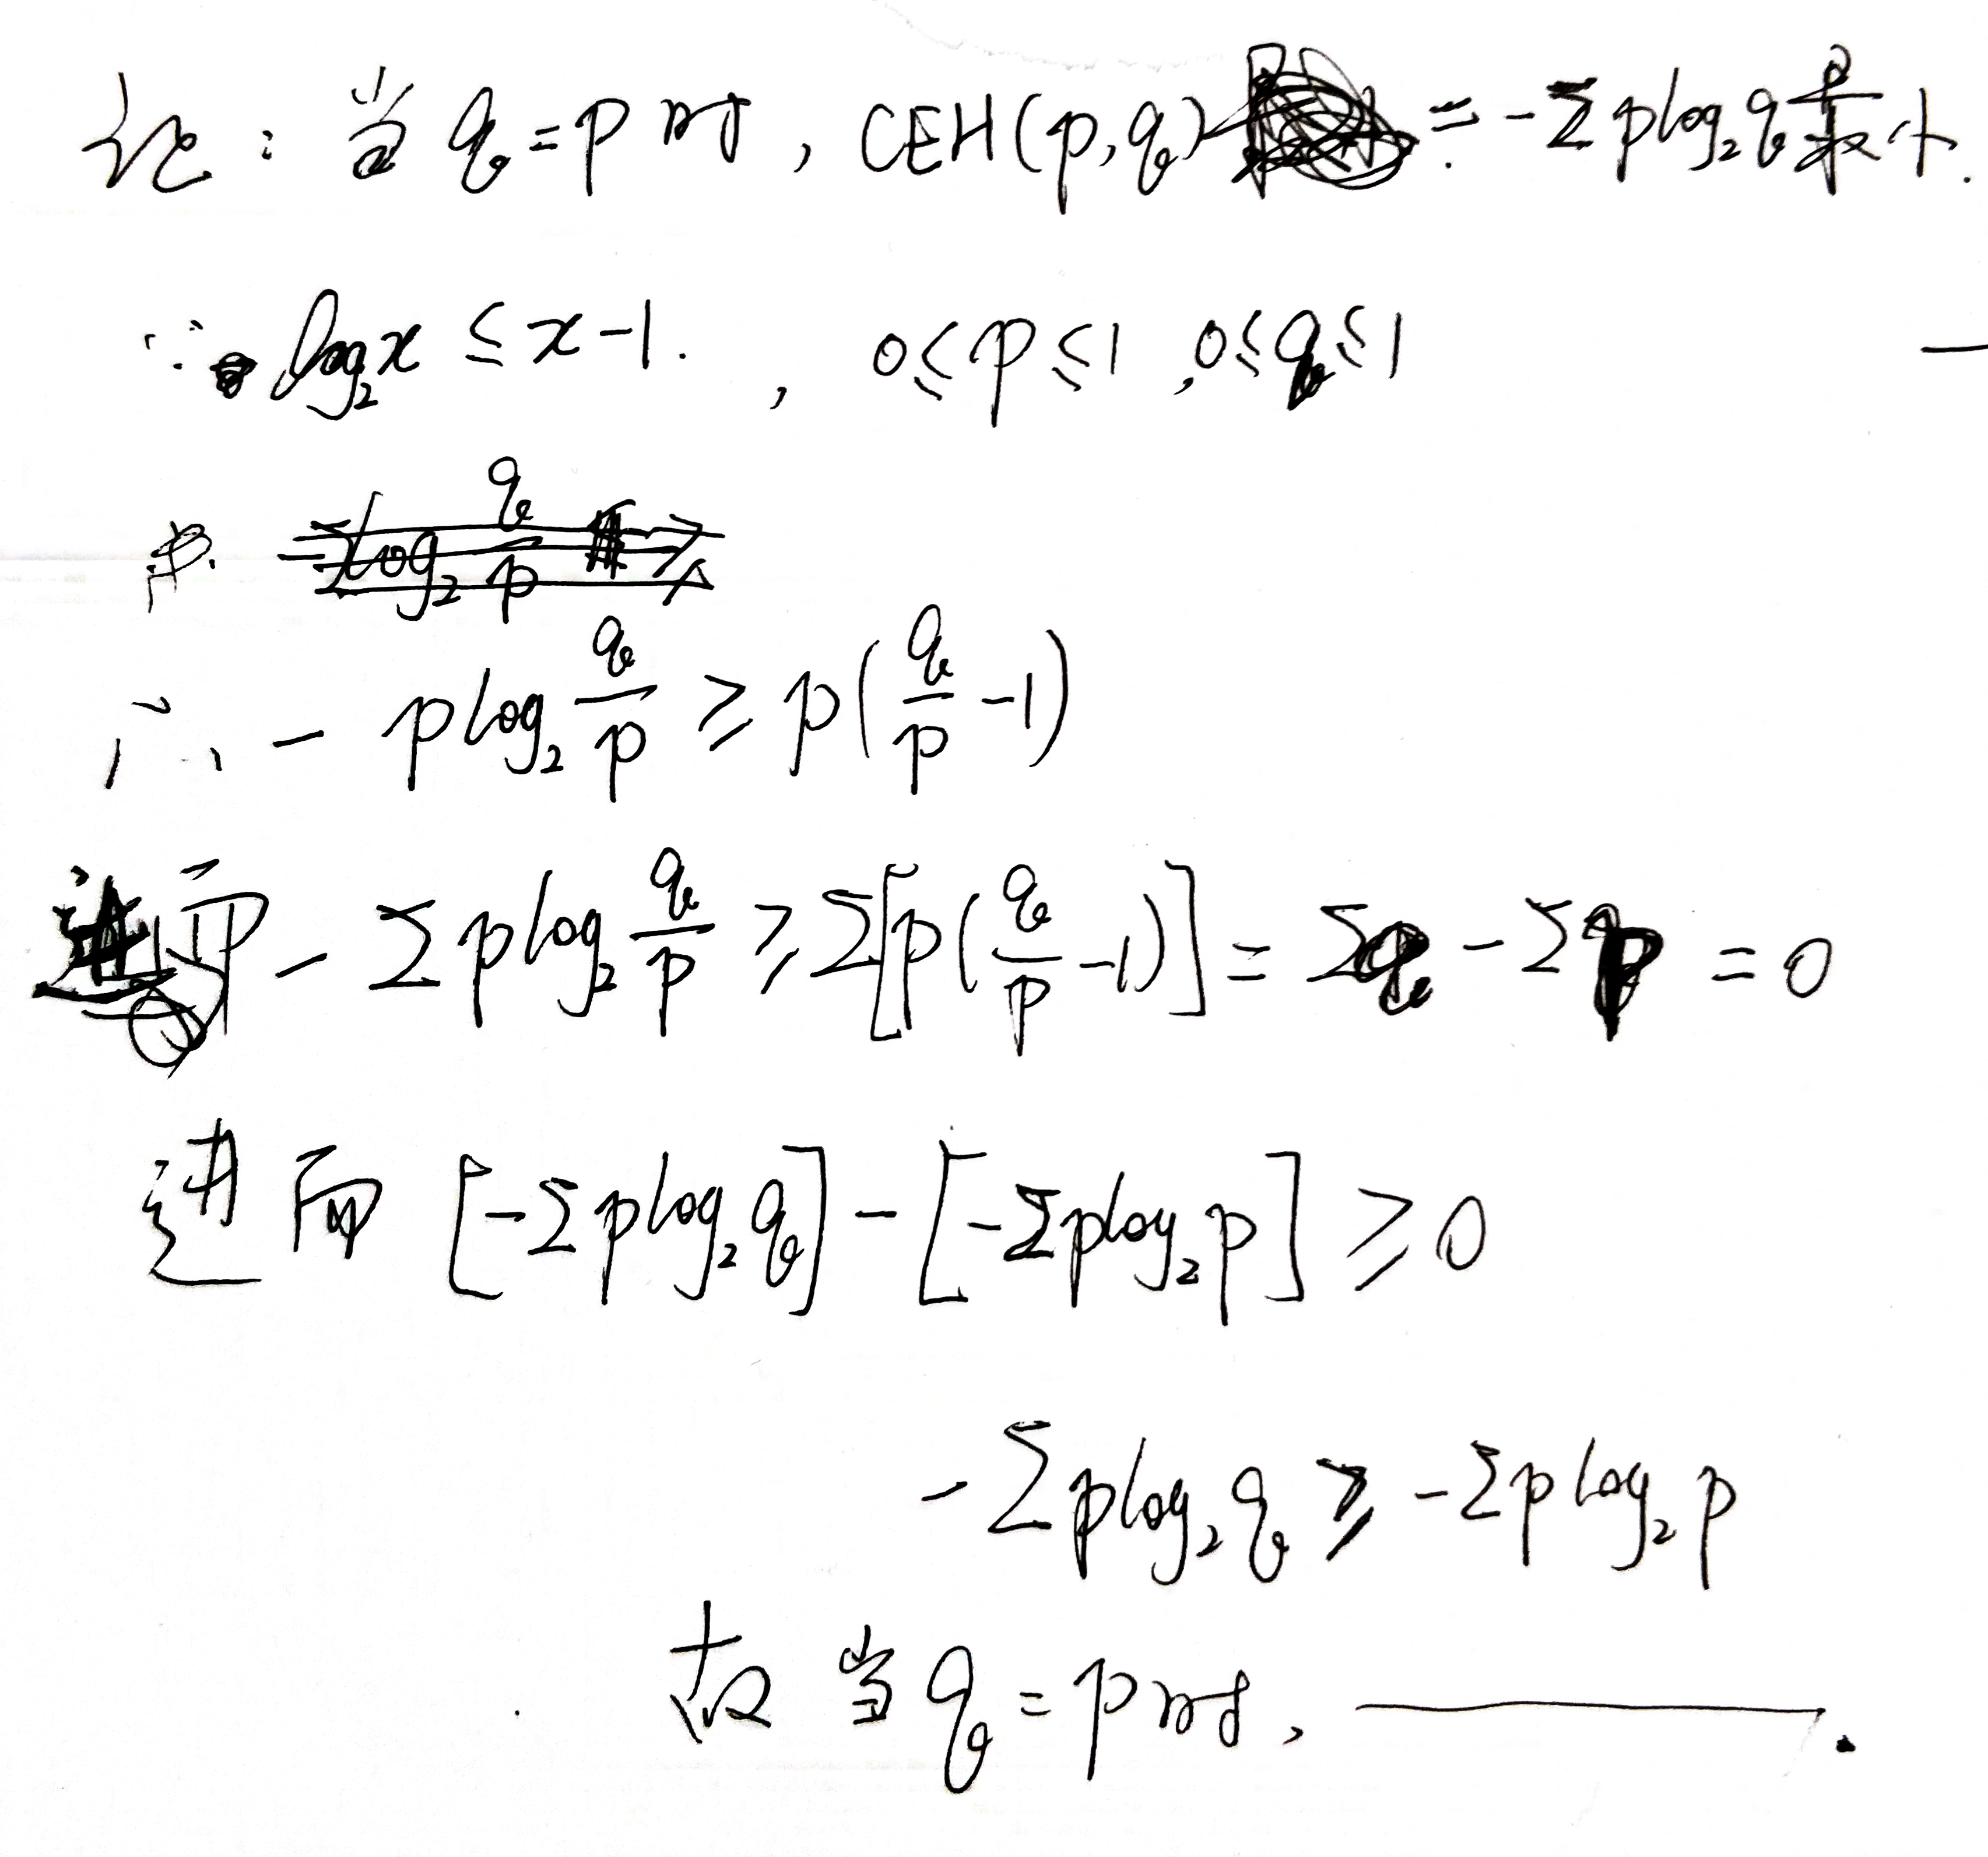 论：当 q=p时，CEH(p,q) = -Σplog₂q最小.
∵ log₂x ≤ x-1. ， 0≤p≤1 ,0≤q≤1
∴ - plog₂ q/p ≥ p(q/p -1)
进而 - Σplog₂ q/p ≥ Σ[p(q/p -1)] = Σq - Σp = 0
进而 [-Σplog₂q] - [-Σplog₂p] ≥ 0
-Σplog₂q ≥ -Σplog₂p
故 当 q=p时, ———.